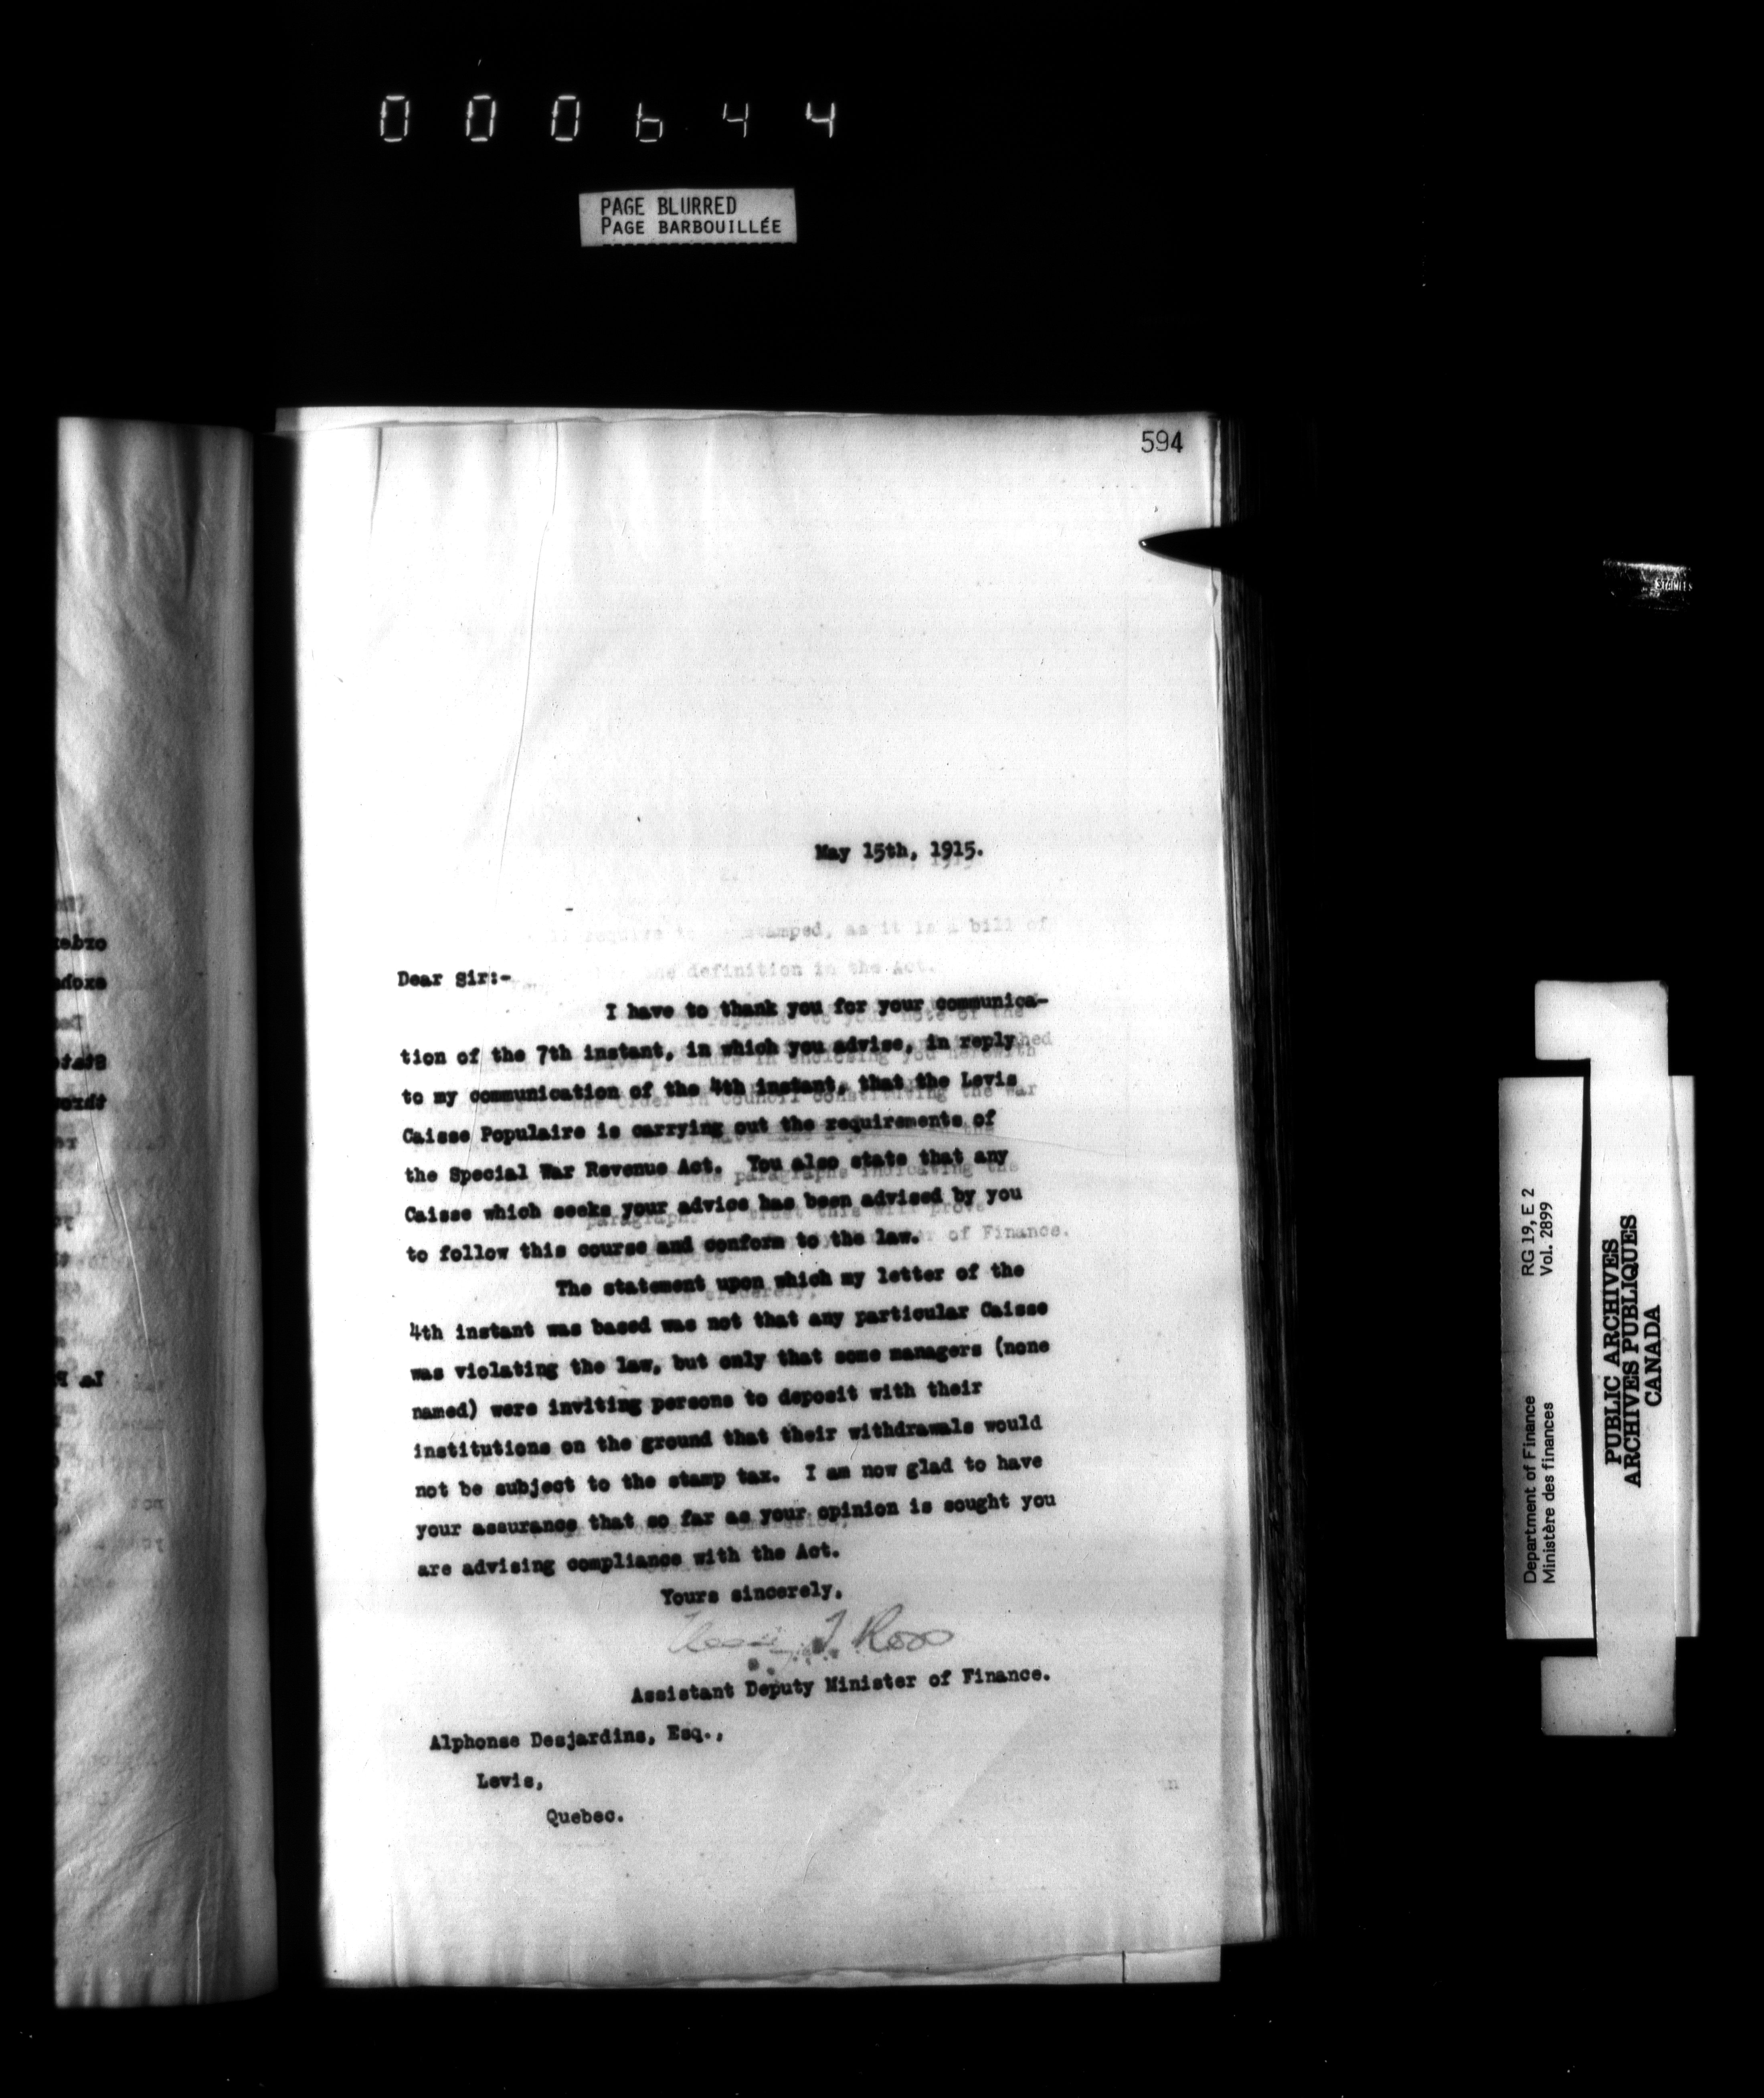 000644
PAGE BLURRED
PAGE BARBOUILLÉE
594
May 15th, 1915.
Dear Sir:-
I have to thank you for your communica-
tion of the 7th instant, in which you advise, in reply
to my communication of the 4th instant, that the Levis
Caisse Populaire is carrying out the requirements of
the Special War Revenue Act. You also state that any
Caisse which seeks your advice has been advised by you
to follow this course and conform to the law.
The statement upon which my letter of the
4th instant was based was not that any particular Caisse
was violating the law, but only that some managers (none
named) were inviting persons to deposit with their
institutions on the ground that their withdrawals would
not be subject to the stamp tax. I am now glad to have
your assurance that so far as your opinion is sought you
are advising compliance with the Act.
Yours sincerely,
Ross
Assistant Deputy Minister of Finance.
Alphonse Desjardins, Esq.,
Levis,
Quebec.
Department of Finance RG 19, E 2
Ministère des finances Vol. 2899
PUBLIC ARCHIVES
ARCHIVES PUBLIQUES
CANADA